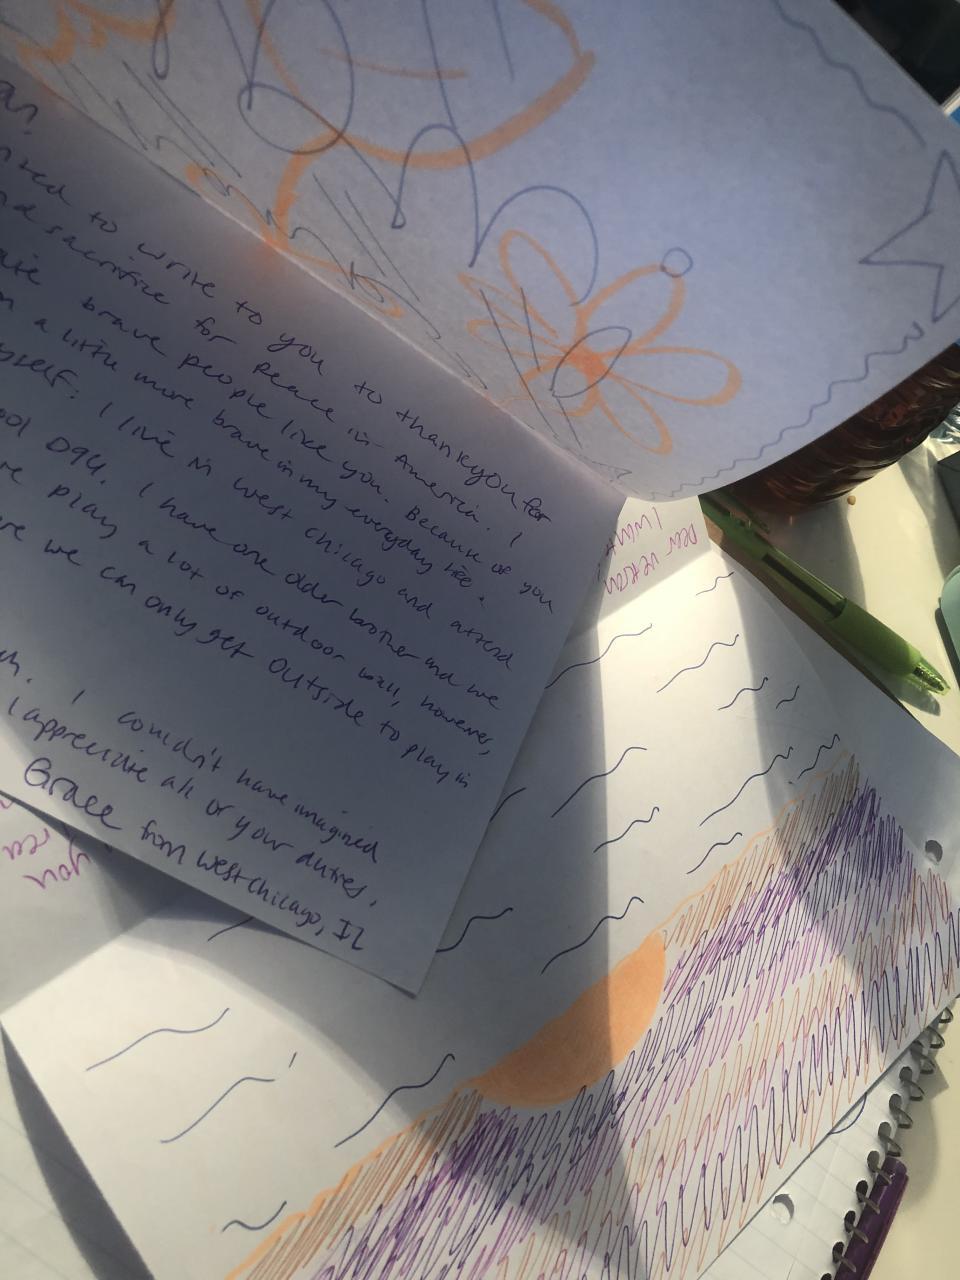 to write to you to thankyou for
sacrifice for Peace in America. I
brave people like you. Because of you
a little more brave in my everyday life.
I live in West Chicago and attend
D94. I have one older brother and we
play a lot of outdoor however,
we can only get outside to play in
I couldn't have imagined
I appreciate all of your duties,
Grace from West Chicago, IL
Dear veteran
I want
you